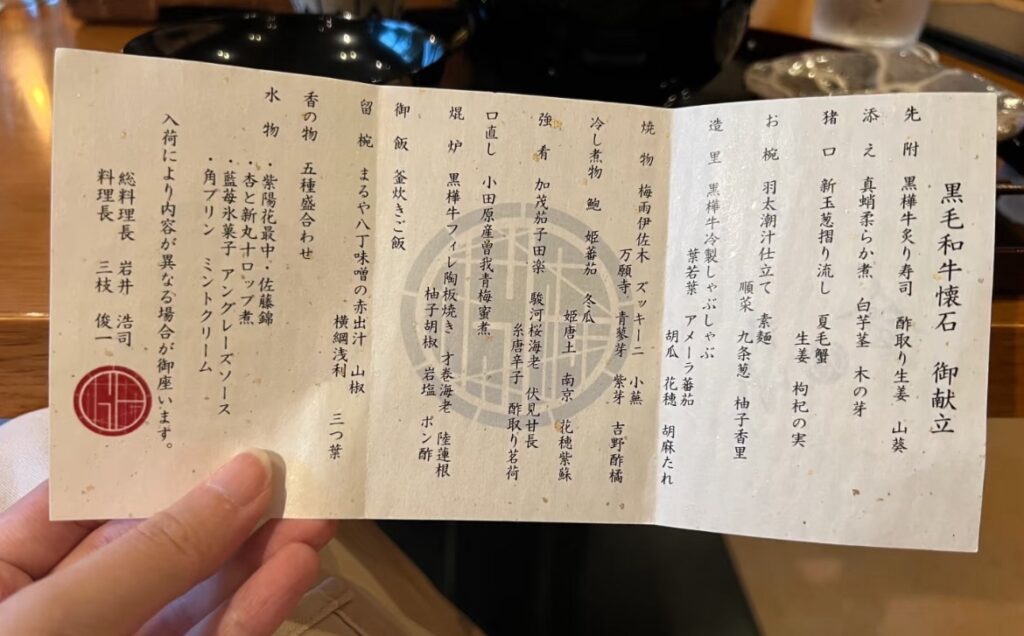 黒毛和牛懐石 御献立
先附 黒樺牛炙り寿司 酢取り生姜 山葵
添え 真蛸柔らか煮 白芋茎 木の芽
猪口 新玉葱摺り流し 夏毛蟹
生姜 枸杞の実
お椀 羽太潮汁仕立て 素麺
順菜 九条葱 柚子香里
造里 黒樺牛冷製しゃぶしゃぶ
葉若芽 アメーラ蕃茄
胡瓜 花穂 胡麻たれ
焼物 梅雨伊佐木 ズッキーニ 小蕪
万願寺 青蓼芽 紫芽 吉野酢橘
冷し煮物 鮑 姫蕃茄 冬瓜
姫唐土 南京 花穂紫蘇
強肴 加茂茄子田楽 駿河桜海老 伏見甘長
糸唐辛子 酢取り茗荷
口直し 小田原産曽我青梅蜜煮
焜炉 黒樺牛フィレ陶板焼き 才巻海老 陸蓮根
柚子胡椒 岩塩 ポン酢
御飯 釜炊きご飯
留椀 まるや八丁味噌の赤出汁 山椒
横綱浅利 三つ葉
香の物 五種盛合わせ
水物 ・紫陽花最中・佐藤錦
・杏と新丸十ロップ煮
・藍苺氷菓子 アングレーズソース
・角プリン ミントクリーム
入荷により内容が異なる場合が御座います。
総料理長 岩井 浩司
料理長 三枝 俊一